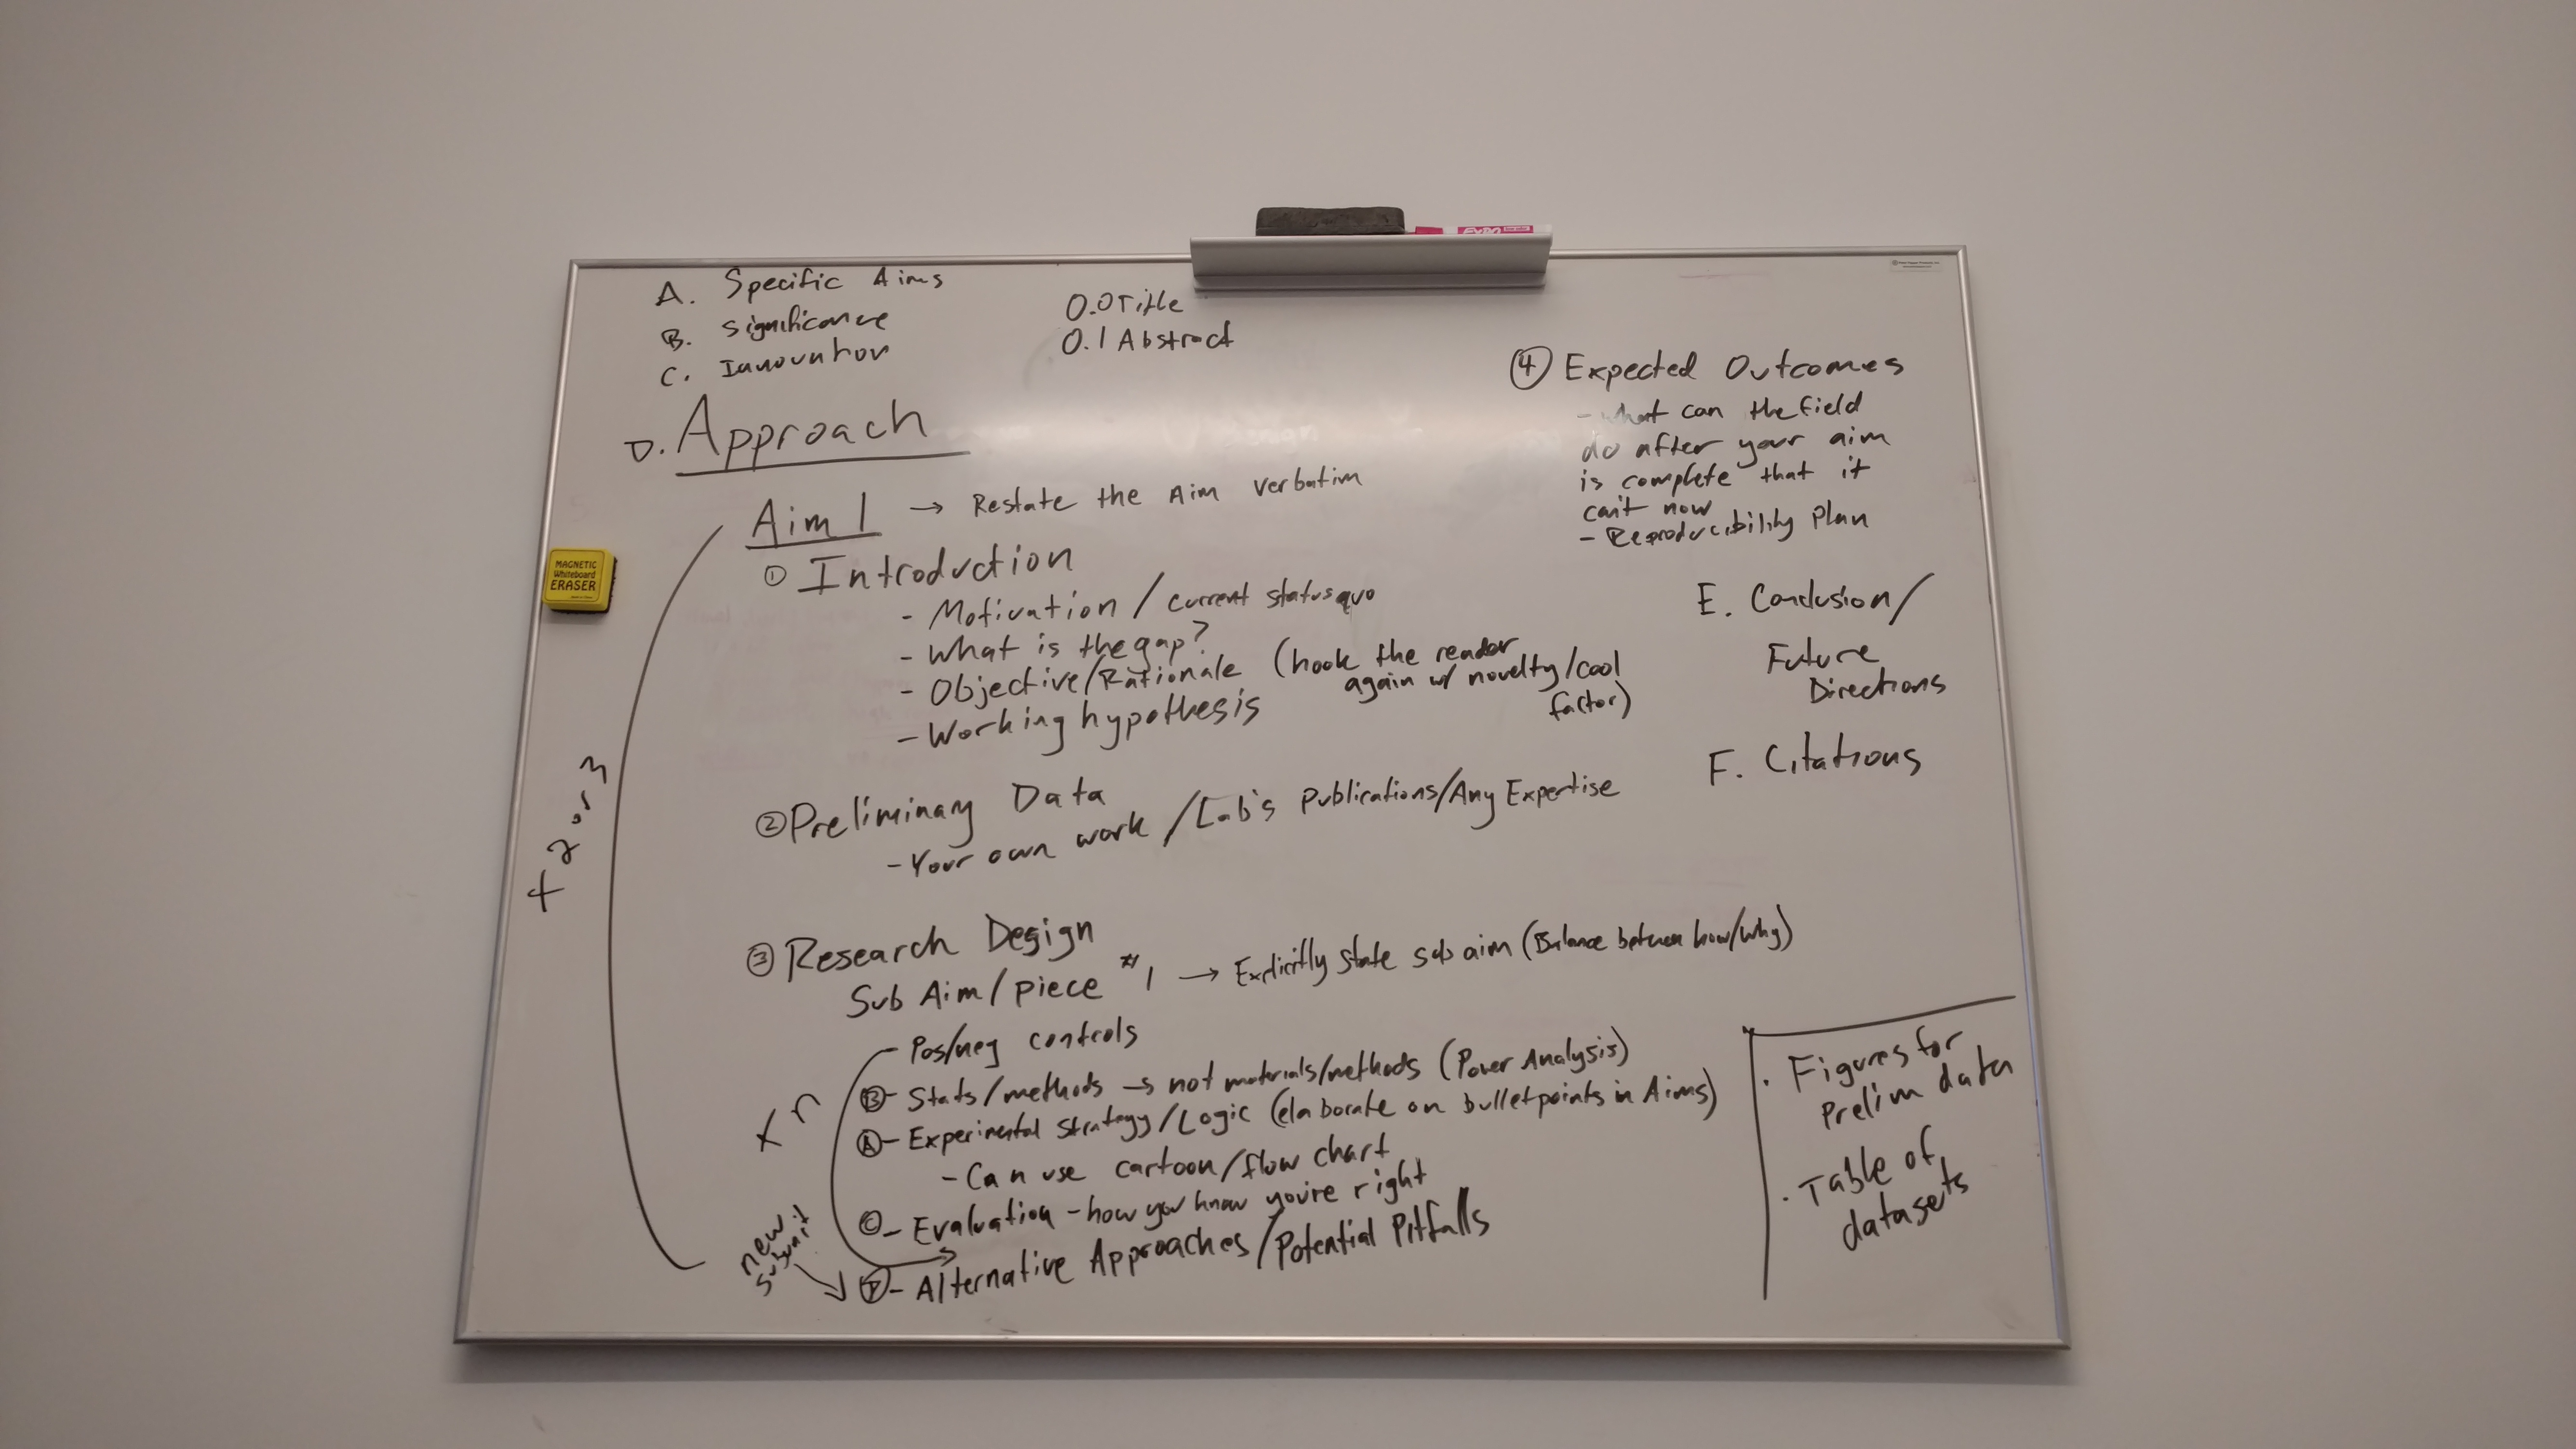 A. Specific Aims
B. Significance
C. Innovation
0.0 Title
0.1 Abstract
D. Approach
Aim 1 → Restate the Aim verbatim
① Introduction
- Motivation / current status quo
- What is the gap?
- Objective/Rationale (hook the reader
again w/ novelty/cool
factor)
- Working hypothesis
② Preliminary Data
- Your own work / Lab's publications/Any Expertise
③ Research Design
Sub Aim/piece #1 → Explicitly state sub aim (Balance between how/why)
- Pos/neg controls
Ⓑ- Stats/methods → not materials/methods (Power Analysis)
Ⓐ- Experimental Strategy/Logic (elaborate on bulletpoints in Aims)
- Can use cartoon/flow chart
Ⓒ- Evaluation - how you know you're right
Ⓓ- Alternative Approaches/Potential Pitfalls
+ 2 or 3
x n
new
subunit
④ Expected Outcomes
- What can the field
do after your aim
is complete that it
can't now
- Reproducibility Plan
E. Conclusion/
Future
Directions
F. Citations
· Figures for
Prelim data
· Table of
datasets
MAGNETIC
Whiteboard
ERASER
EXPO